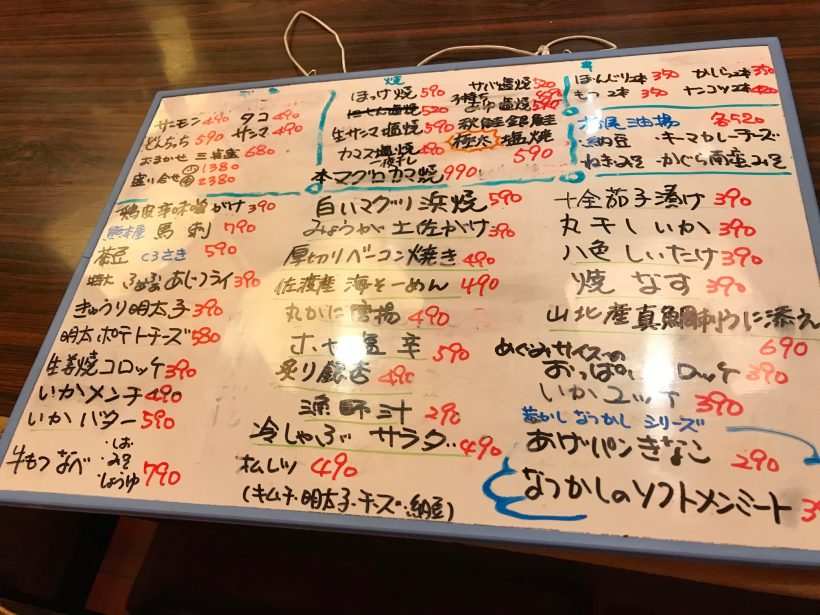 サーモン 490 タコ 490
590 サンマ 490
おまかせ 三点盛 680
盛り合せ 1380
2380
焼
ほっけ焼 590
にしん塩焼 520
生サンマ塩焼 590
カマス塩焼 490
一夜干し
本マグロカマ焼 990
サバ塩焼 520
子持ち
あゆ塩焼 590
秋鮭 銀鮭
極太 塩焼
590
ぼんじり2本 350 かしら2本 350
もつ2本 350 ナンコツ2本 420
栃尾油揚 各520
納豆 ・キーマカレーチーズ
ねぎみそ ・かぐら南蛮みそ
鶏皮辛味噌がけ 390
熊本産 馬刺 790
590
特大 あじフライ 390
きゅうり明太子 390
明太ポテトチーズ 580
生姜焼コロッケ 390
いかメンチ 490
いかバター 590
牛もつなべ ・しお ・みそ ・しょうゆ 790
白いマグリ浜焼 590
みょうが土佐がけ 390
厚切りベーコン焼き 490
佐渡産 海そーめん 490
丸がに唐揚 490
ホヤ塩辛 590
炙り銀杏 490
漁師汁 290
冷しゃぶ サラダ 490
オムレツ 490
(キムチ・明太子・チーズ・納豆)
十全茄子漬け 390
丸干しいか 390
八色しいたけ 390
焼なす 390
山北産真鯛刺うに添え
690
めぐみサイズの
おっぱいコロッケ 390
いかユッケ 390
昔なつかしシリーズ
あげパンきなこ 290
なつかしのソフトメンミート